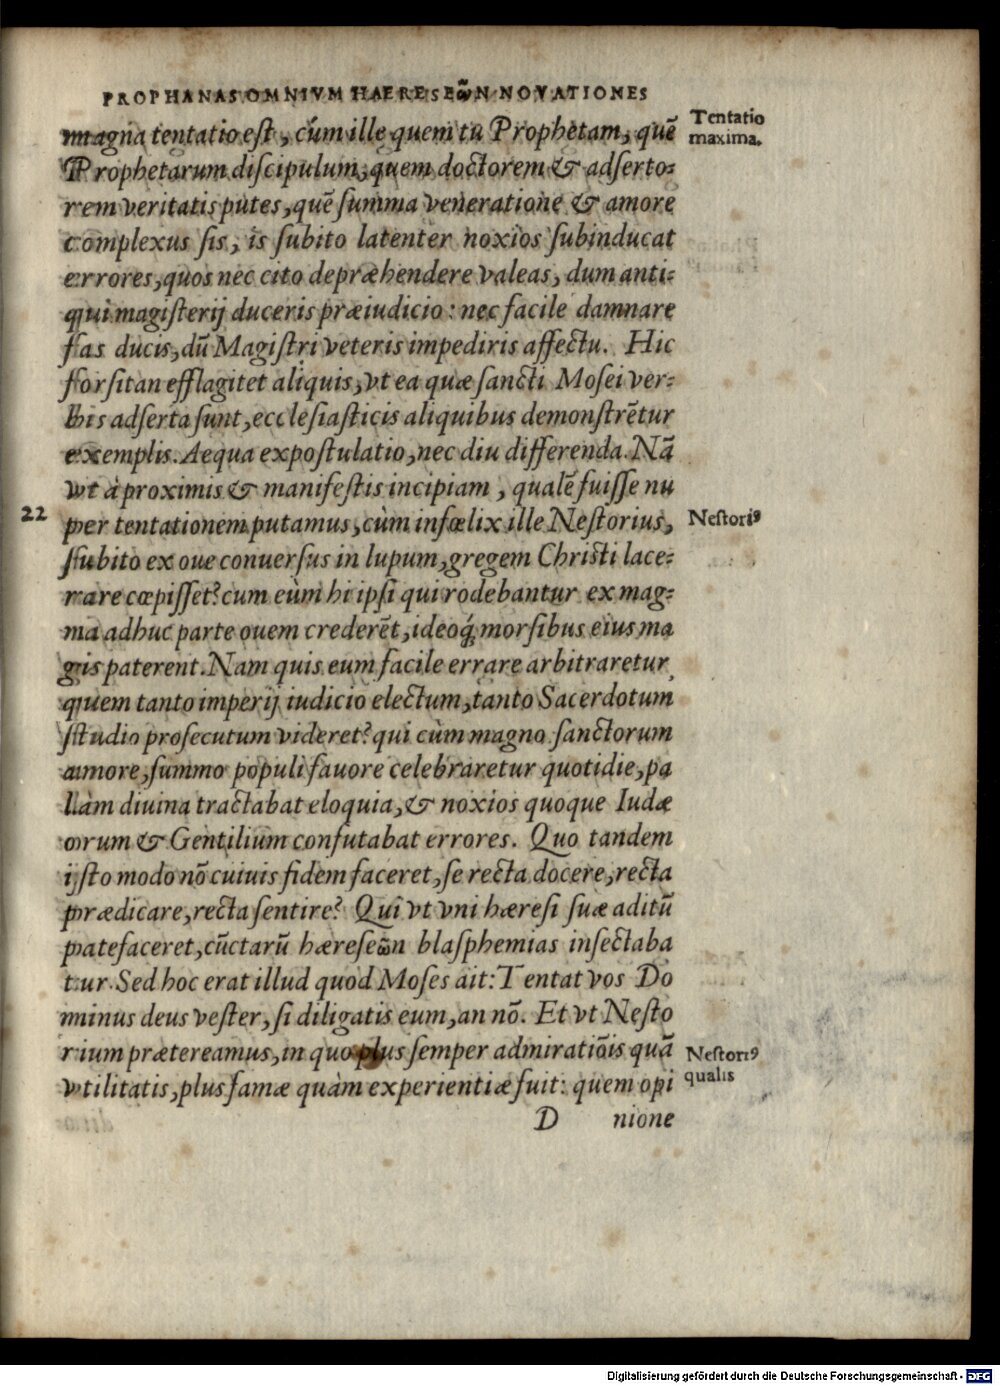 PROPHANAS OMNIVM HAERESEω̃N NOVATIONES
magna tentatio est, cùm ille quem tu Prophetam, quē
Prophetarum discipulum, quem doctorem & adserto-
rem veritatis putes, quē summa veneratione & amore
complexus sis, is subito latenter noxios subinducat
errores, quos nec cito depræhendere valeas, dum anti-
qui magisterij duceris præiudicio: nec facile damnare
fas ducis, dū Magistri veteris impediris affectu. Hic
forsitan efflagitet aliquis, vt ea quæ sancti Mosei ver-
bis adserta sunt, ecclesiasticis aliquibus demonstrētur
exemplis. Aequa expostulatio, nec diu differenda. Nā
vt à proximis & manifestis incipiam, qualē fuisse nu
per tentationem putamus, cùm infœlix ille Nestorius,
subito ex oue conuersus in lupum, gregem Christi lace-
rare cœpisset? cum eùm hi ipsi qui rodebantur ex mag-
ma adhuc parte ouem crederēt, ideoq́; morsibus eius ma
gis paterent. Nam quis eum facile errare arbitraretur,
quem tanto imperij iudicio electum, tanto Sacerdotum
studio prosecutum videret? qui cùm magno sanctorum
amore, summo populi fauore celebraretur quotidie, pa
làm diuina tractabat eloquia, & noxios quoque Iudæ
orum & Gentilium confutabat errores. Quo tandem
isto modo nō cuiuis fidem faceret, se recta docere, recta
prædicare, recta sentire? Qui vt vni hæresi suæ aditū
patefaceret, cūctarū hæreseω̃n blasphemias insectaba
tur. Sed hoc erat illud quod Moses ait: Tentat vos Do
minus deus vester, si diligatis eum, an nō. Et vt Nesto
rium prætereamus, in quo plus semper admiratiōis quā
vtilitatis, plus famæ quàm experientiæ fuit: quem opi
D nione
Tentatio
maxima.
22
Nestoriꝰ
Nestoriꝰ
qualis
Digitalisierung gefördert durch die Deutsche Forschungsgemeinschaft - DFG